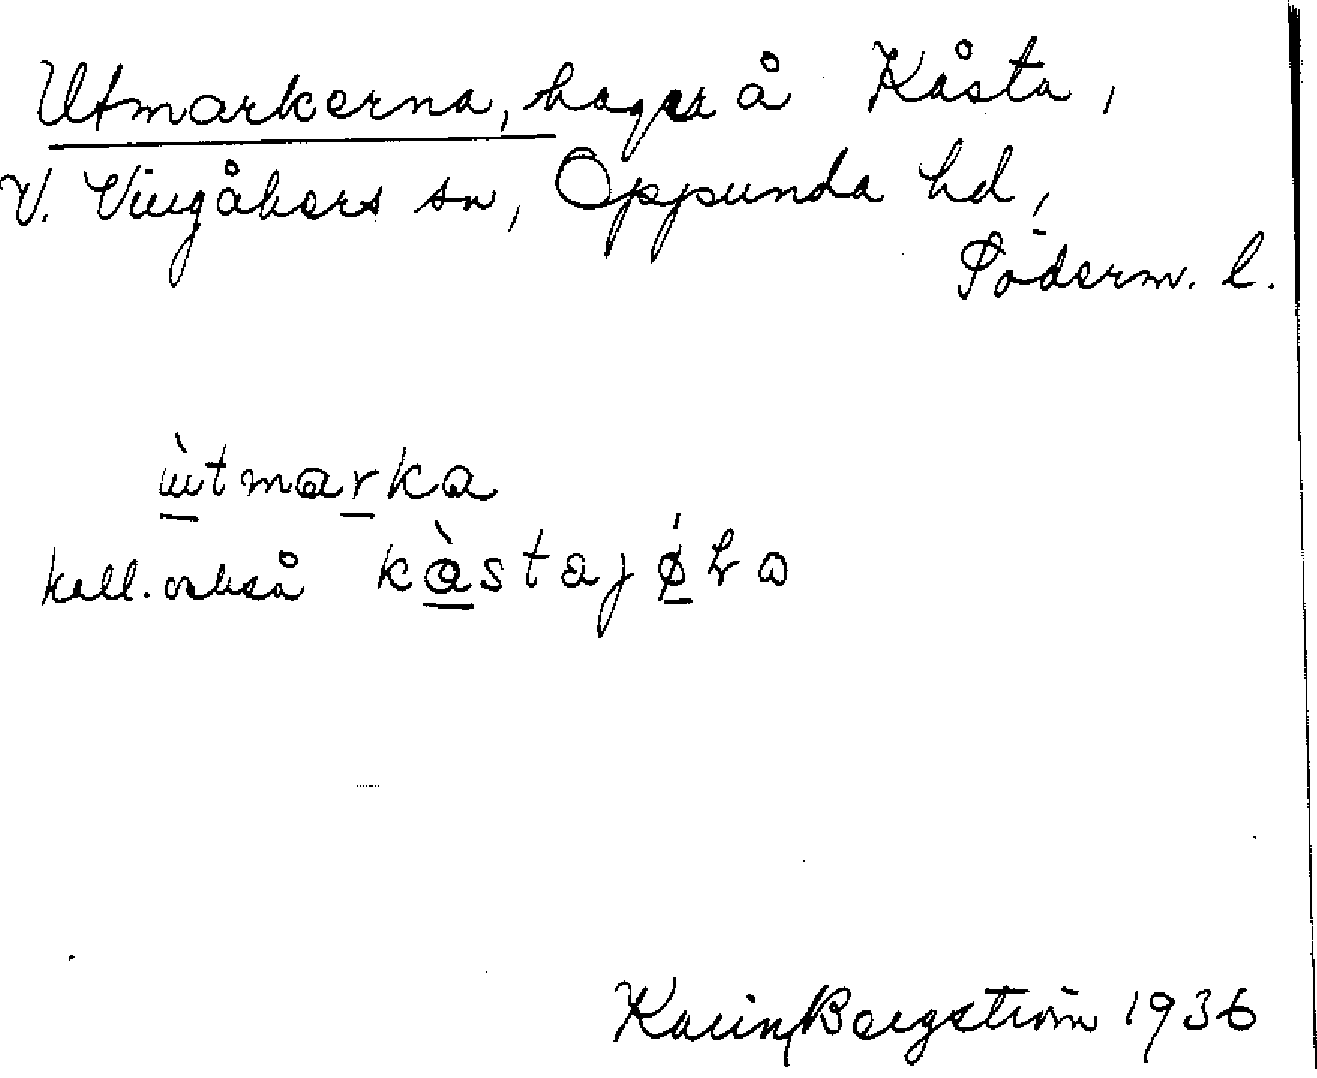 Utmarkerna, hager å Kåsta,
V. Vingåkers sn, Oppunda hd,
Söderm. l.
ùtmarka
kall. också kàstajǿla
Karin Bergström 1936